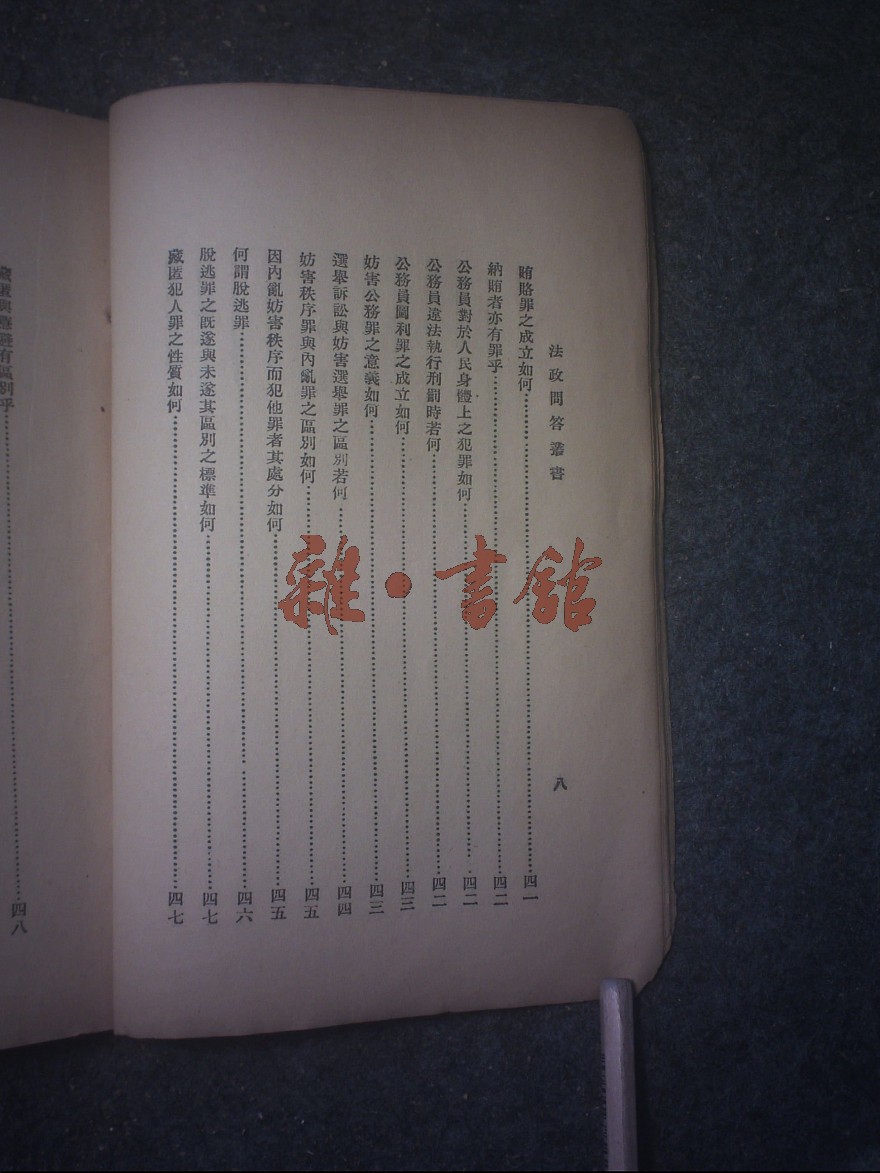 法政問答叢書
八
賄賂罪之成立如何⋯⋯四一
納賄者亦有罪乎⋯⋯四二
公務員對於人民身體上之犯罪如何⋯⋯四二
公務員違法執行刑罰時若何⋯⋯四二
公務員圖利罪之成立如何⋯⋯四三
妨害公務罪之意義如何⋯⋯四三
選舉訴訟與妨害選舉罪之區別若何⋯⋯四四
妨害秩序罪與內亂罪之區別如何⋯⋯四五
因內亂妨害秩序而犯他罪者其處分如何⋯⋯四五
何謂脫逃罪⋯⋯四六
脫逃罪之既遂與未遂其區別之標準如何⋯⋯四七
藏匿犯人罪之性質如何⋯⋯四七
有區別乎⋯⋯四八
雜·書館